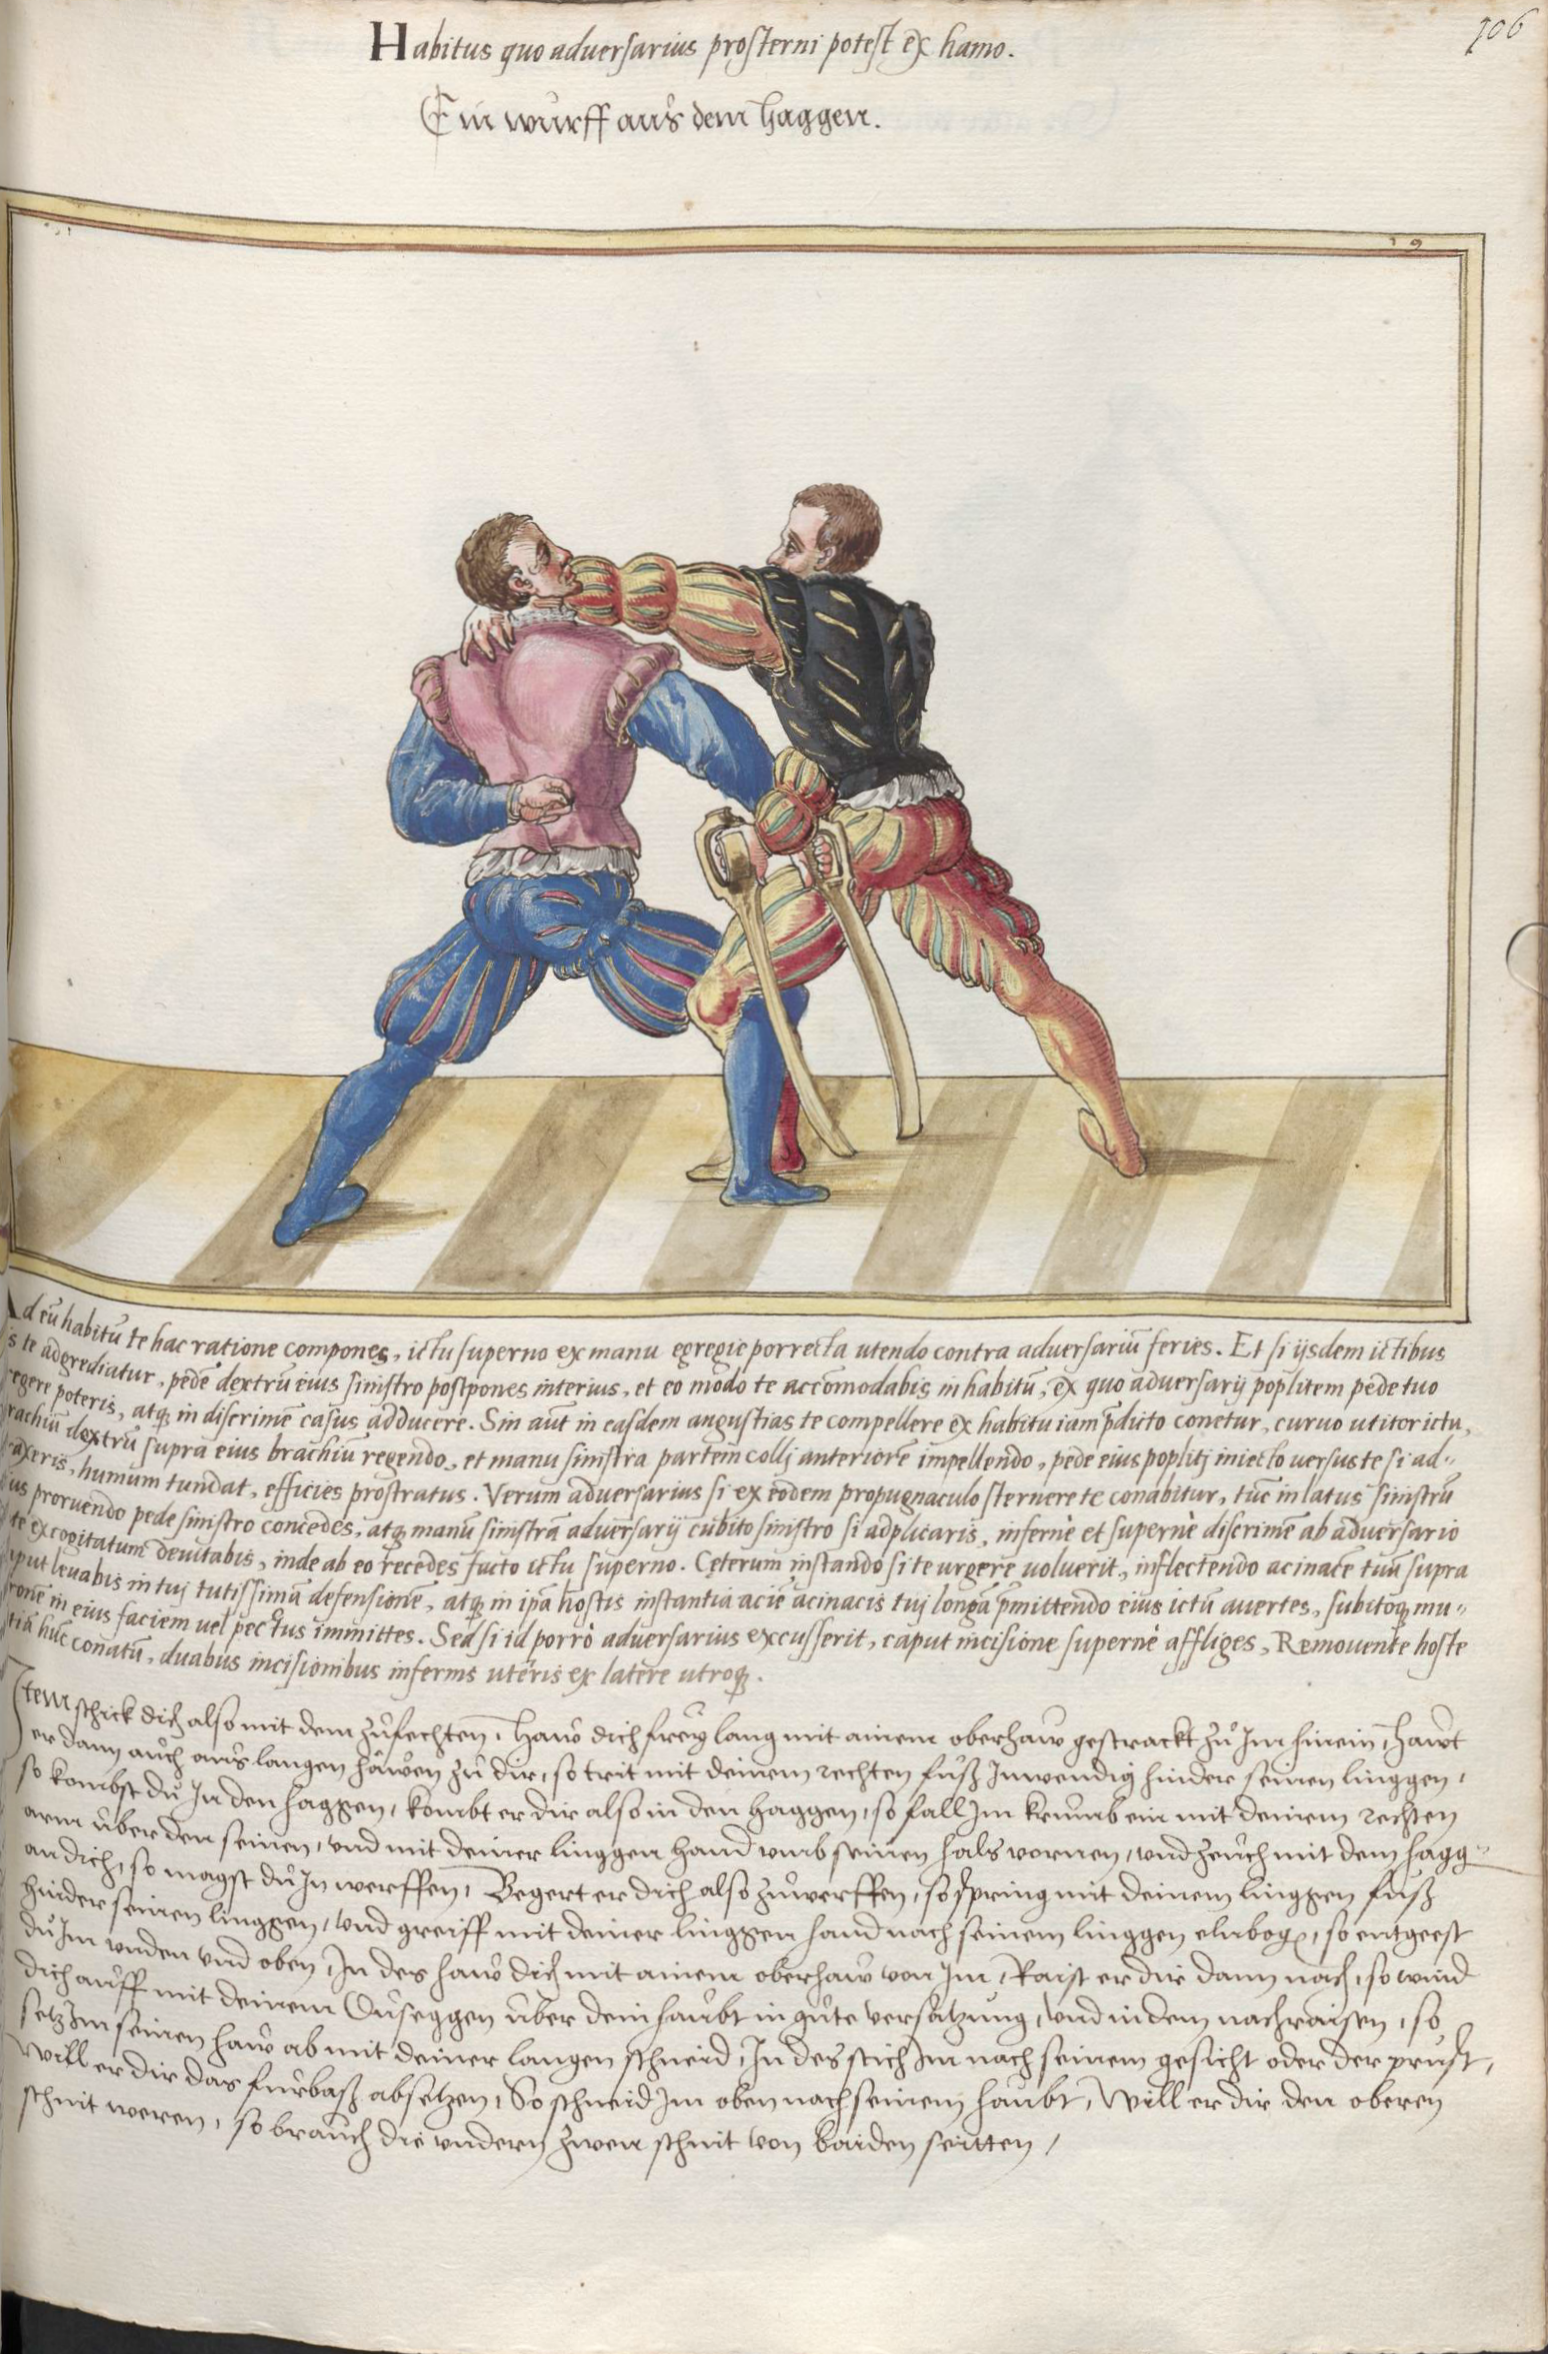 106
Habitus quo aduersarius prosterni potest ex hamo.
Ein wurff aus dem haggen.
19
Ad eũ habitũ te hac ratione compones, ictu superno ex manu egregie porrecta utendo contra aduersariũ feries. Et si ijsdem ictibus
s te adgrediatur, pedẽ dextrũ eius sinistro postpones interius, et eo modo te accomodabis in habitũ, ex quo aduersarij poplitem pede tuo
regere poteris, atq; in discrimẽ casus adducere. Sin aũt in easdem angustias te compellere ex habitu iam p̃dicto conetur, curuo utitor ictu,
rachiũ dextrũ supra eius brachiũ regendo, et manu sinistra partem collj anteriorẽ impellendo, pede eius poplitj iniecto uersus te si ad-
axeris, humum tundat, efficies prostratus. Verum aduersarius si ex eodem propugnaculo sternere te conabitur, tũc in latus sinistrũ
ius proruendo pede sinistro concedes, atq; manũ sinistrã aduersarij cubito sinistro si adplicaris, infernè et supernè discrimẽ ab aduersario
te excogitatum deuitabis, inde ab eo recedes facto ictu superno. Cęterum instando si te urgere uoluerit, inflectendo acinacẽ tuũ supra
aput leuabis in tuj tutissimã defensionẽ, atq; in ipã hostis instantia aciẽ acinacis tuj longã p̃mittendo eius ictũ auertes, subitoq; mu-
ronẽ in eius faciem uel pectus immittes. Sed si id porrò aduersarius excusserit, caput incisione supernè affliges, Remouente hoste
tiã hũc conatũ, duabus incisionibus infernis uteris ex latere utroq;.
Item schick dich also mit dem zůfechten, haw dich frey lang mit ainem oberhaw gestrackt zů Im hinein, hawt
er dann auch aus langen häwen zů dir, so trit mit deinem rechten fuß Inwendig hinder seinen linggen,
so kombst du In den haggen, kombt er dir also in den haggen, so fall Im krumb ein mit deinem rechten
arm über den seinen, vnd mit deiner linggen hand vmb seinen hals vornen, vnd zeuch mit dem hagg-
an dich, so magst du In werffen, Begert er dich also zuwerffen, so spring mit deinem linggen fuß
hinder seinen linggen, vnd greiff mit deiner linggen hand nach seinem linggen elnbogen, so entgeest
du Im vnden vnd oben, In des haw dich mit ainem oberhaw von Im, Raist er dir dann nach, so wind
dich auff mit deinem Duseggen über dein haubt in gute versatzung, vnd in dem nachraisen, so
setz Im seinen haw ab mit deiner langen schneid, In des stich Im nach seinem gesicht oder der prust,
Will er dir das fürbaß absetzen, So schneid Im oben nach seinem haubt, Will er dir den oberen
schnit weren, so brauch die vndern zwen schnit von baiden seitten,